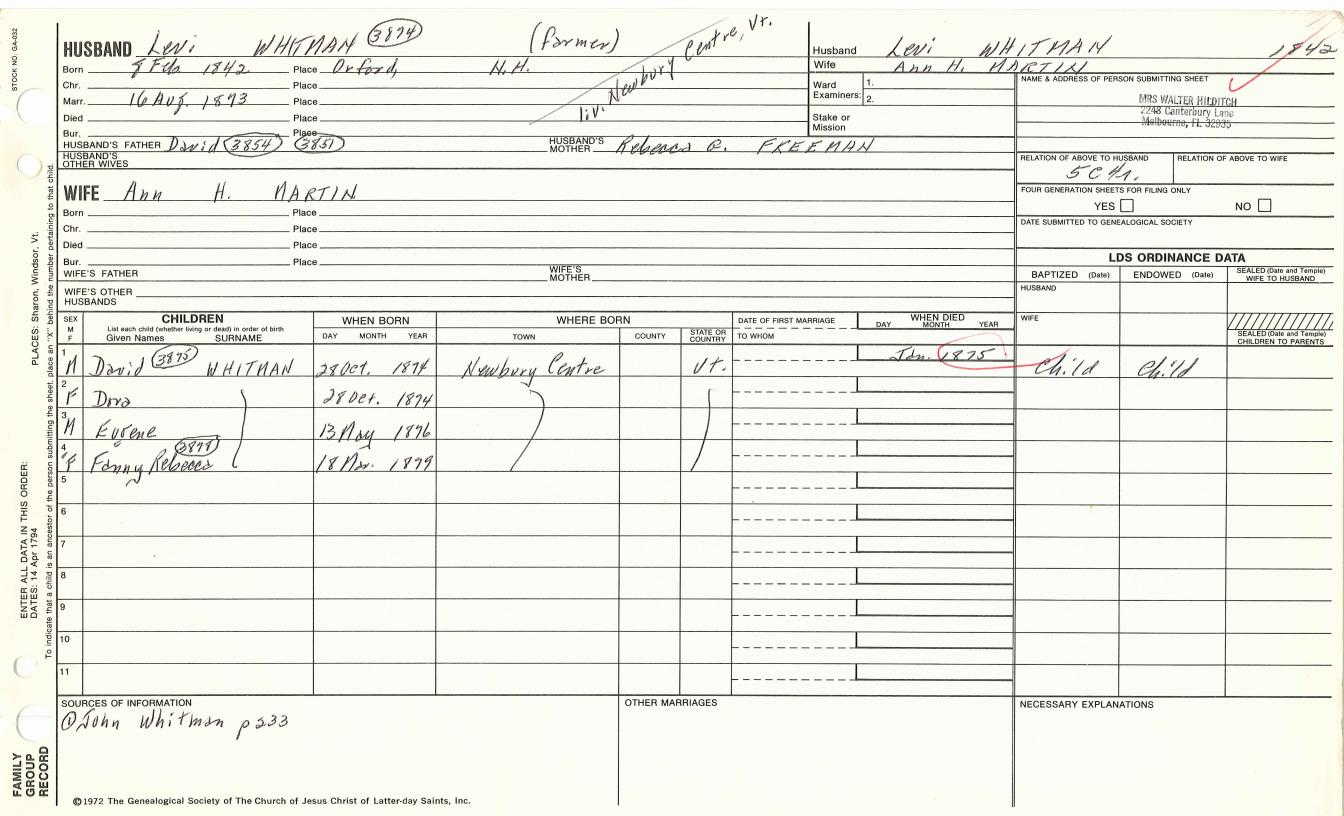 STOCK NO. GA-032
HUSBAND Levi WHITMAN 3874 (farmer)
liv. Newbury Centre, Vt.
Born 8 Feb 1842 Place Orford, N.H.
Chr. Place
Marr. 16 Aug. 1873 Place
Died Place
Bur. Place
HUSBAND'S FATHER David 3854 3851 HUSBAND'S MOTHER Rebecca P. FREEMAN
HUSBAND'S OTHER WIVES
Husband Levi WHITMAN 1842
Wife Ann H. MARTIN
Ward Examiners: 1.
2.
Stake or Mission
NAME & ADDRESS OF PERSON SUBMITTING SHEET
MRS WALTER HILDITCH
2248 Canterbury Lane
Melbourne, FL 32935
RELATION OF ABOVE TO HUSBAND RELATION OF ABOVE TO WIFE
5C4r.
FOUR GENERATION SHEETS FOR FILING ONLY
YES NO
DATE SUBMITTED TO GENEALOGICAL SOCIETY
WIFE Ann H. MARTIN
Born Place
Chr. Place
Died Place
Bur. Place
WIFE'S FATHER WIFE'S MOTHER
WIFE'S OTHER HUSBANDS
LDS ORDINANCE DATA
BAPTIZED (Date) ENDOWED (Date) SEALED (Date and Temple) WIFE TO HUSBAND
HUSBAND
WIFE
SEALED (Date and Temple) CHILDREN TO PARENTS
SEX M F CHILDREN WHEN BORN WHERE BORN DATE OF FIRST MARRIAGE WHEN DIED
List each child (whether living or dead) in order of birth
Given Names SURNAME DAY MONTH YEAR TOWN COUNTY STATE OR COUNTRY TO WHOM DAY MONTH YEAR
1 M David 3875 WHITMAN 28 Oct. 1874 Newbury Centre Vt. Jan. 1875 Child Child
2 F Dora 28 Oct. 1874
3 M Eugene 13 May 1876
4 F Fanny Rebecca 3878 18 Mar. 1879
5
6
7
8
9
10
11
SOURCES OF INFORMATION OTHER MARRIAGES NECESSARY EXPLANATIONS
① John Whitman p 233
©1972 The Genealogical Society of The Church of Jesus Christ of Latter-day Saints, Inc.
ENTER ALL DATA IN THIS ORDER:
DATES: 14 Apr 1794 PLACES: Sharon, Windsor, Vt.
To indicate that a child is an ancestor of the person submitting the sheet, place an "X" behind the number pertaining to that child.
FAMILY
GROUP
RECORD